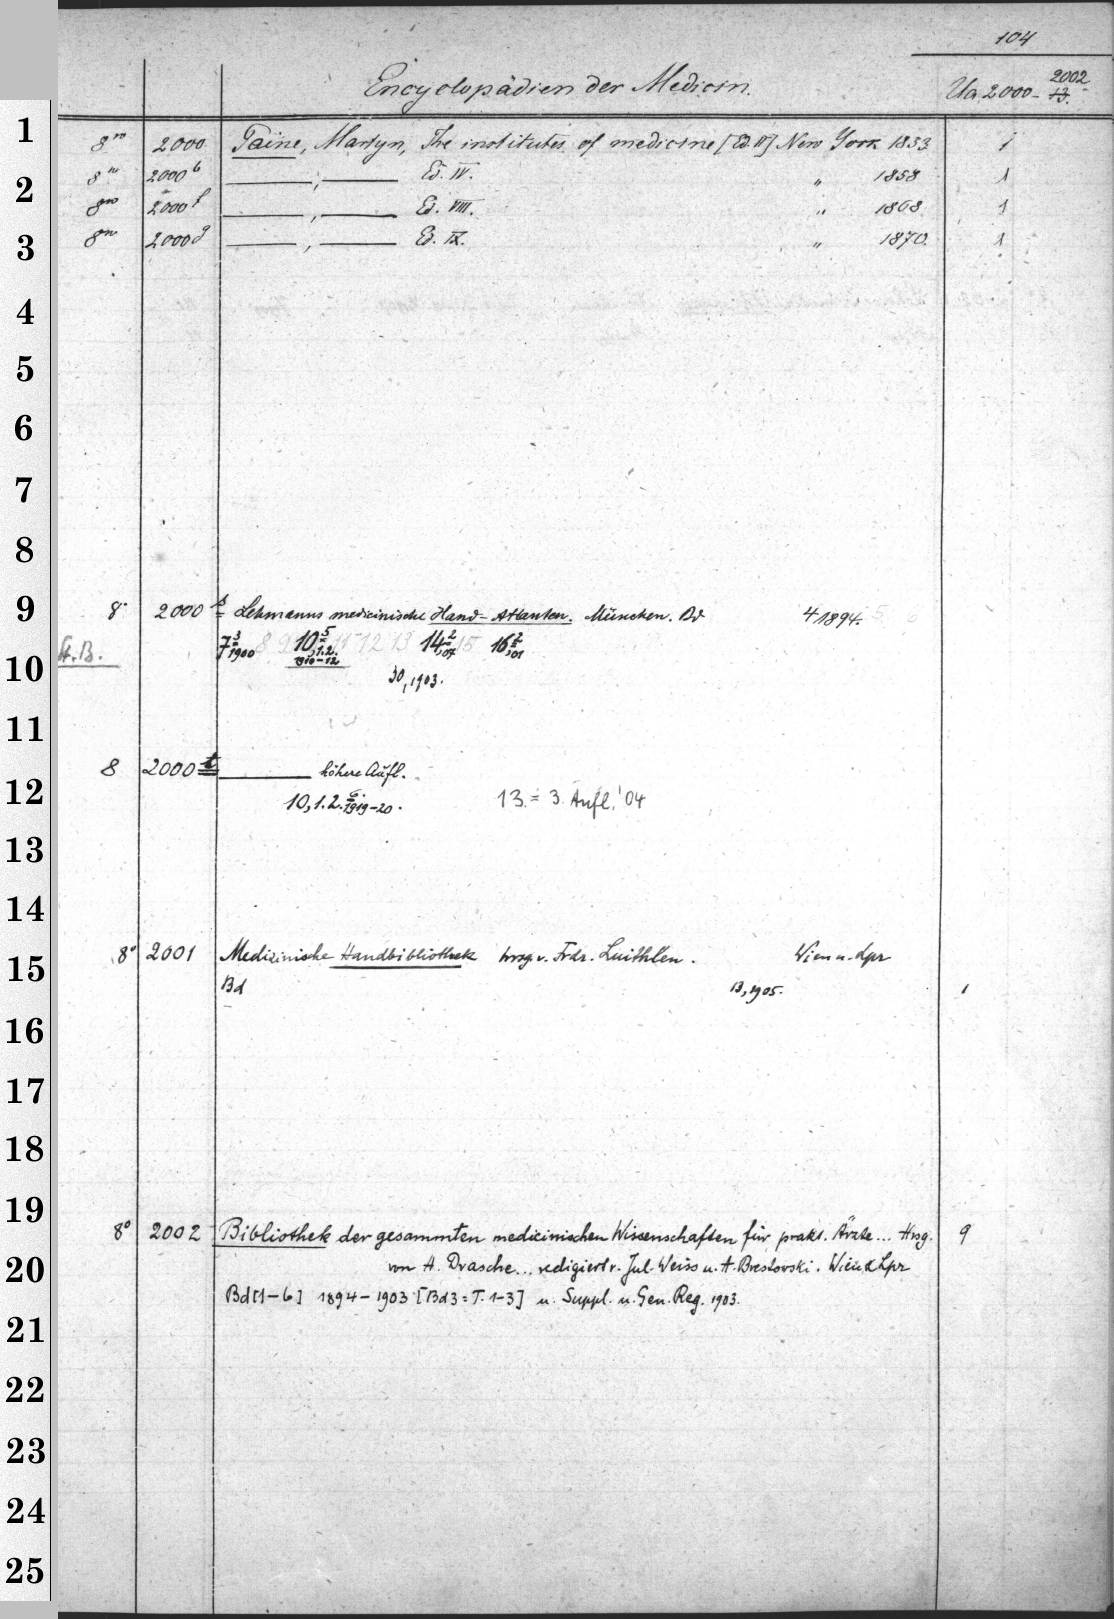 104
Encyclopädien der Medicin. Ua 2000- 2002 13.
1
8vo 2000 Paine, Martyn, The institutes of medicine [Ed. II] New York 1853 1
8vo 2000 b ———, ——— Ed. IV. " 1858 1
2
8vo 2000 f ———, ——— Ed. VIII. " 1868 1
8vo 2000 g ———, ——— Ed. IX. " 1870. 1
3
4
5
6
7
8
9 8° 2000 s Lehmanns medicinische Hand-Atlanten. München. Bd 4 1894. 5 6
7 3 1900 8 9 10, 5 1.2. 1910-12 11 12 13 14, 2 07 15 16, 2 01
10 H.B.
30, 1903.
11
8 2000 t ——— höhere Aufl.
12 10, 1.2. 6. 1919-20. 13. = 3. Aufl. '04
13
14
15 8° 2001 Medicinische Handbibliothek hrsg. v. Frdr. Luithlen. Wien u. Lpz
Bd 13, 1905. 1
16
17
18
19
8° 2002 Bibliothek der gesammten medicinischen Wissenschaften für prakt. Ärzte... Hrsg. 9
20 von A. Drasche... redigiert v. Jul. Weiss u. A. Brestowski. Wien & Lpz
Bd [1-6] 1894-1903 [Bd 3 = T. 1-3] u. Suppl. u. Gen. Reg. 1903.
21
22
23
24
25